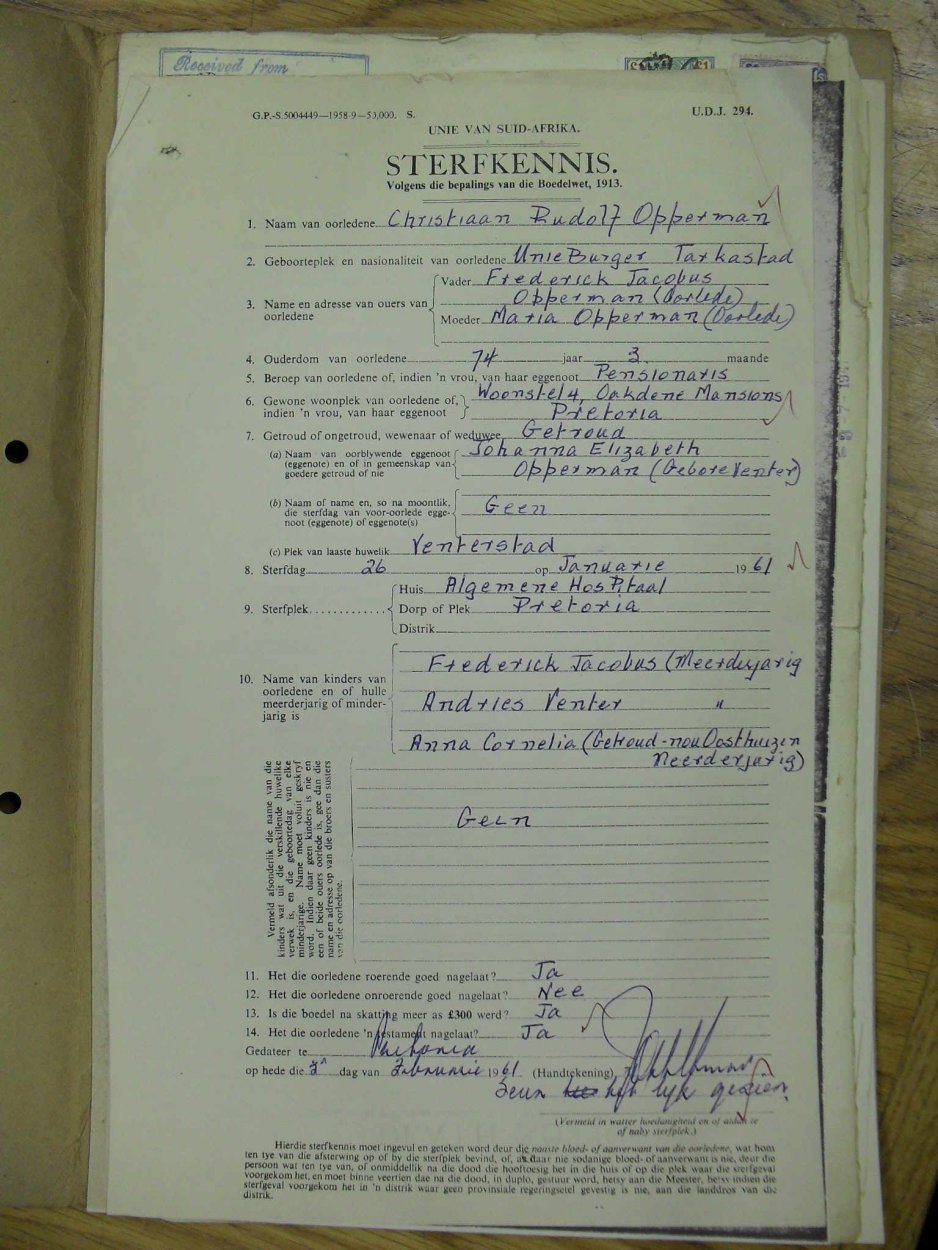 Received from
£1
G.P.-S.5004449—1958-9—53,000. S.
U.D.J. 294.
UNIE VAN SUID-AFRIKA.
STERFKENNIS.
Volgens die bepalings van die Boedelwet, 1913.
1. Naam van oorledene Christiaan Rudolf Opperman
2. Geboorteplek en nasionaliteit van oorledene Unie Burger Tarkastad
3. Name en adresse van ouers van oorledene
Vader Frederick Jacobus
Opperman (Oorlede)
Moeder Maria Opperman (Oorlede)
4. Ouderdom van oorledene 74 jaar 3 maande
5. Beroep van oorledene of, indien 'n vrou, van haar eggenoot Pensionaris
6. Gewone woonplek van oorledene of, Woonstel 4, Oakdene Mansions
indien 'n vrou, van haar eggenoot Pretoria
7. Getroud of ongetroud, wewenaar of weduwee Getroud
(a) Naam van oorblywende eggenoot Johanna Elizabeth
(eggenote) en of in gemeenskap van Opperman (Gebore Venter)
goedere getroud of nie
(b) Naam of name en, so na moontlik,
die sterfdag van voor-oorlede egge- Geen
noot (eggenote) of eggenote(s)
(c) Plek van laaste huwelik Venterstad
8. Sterfdag 26 op Januarie 1961
9. Sterfplek............ Huis Algemene Hospitaal
Dorp of Plek Pretoria
Distrik
Frederick Jacobus (Meerderjarig
10. Name van kinders van
oorledene en of hulle
meerderjarig of minder- Andries Venter "
jarig is
Anna Cornelia (Getroud - nou Oosthuizen
Meerderjarig)
Vermeld afsonderlik die name van die
kinders wat uit die verskillende huwelike
verwek is, en die geboortedag van elke
minderjarige. Name moet voluit geskryf
word. Indien daar geen kinders is nie en
een of beide ouers oorlede is, gee dan die
name en adresse op van die broers en susters
van die oorledene.
Geen
11. Het die oorledene roerende goed nagelaat? Ja
12. Het die oorledene onroerende goed nagelaat? Nee
13. Is die boedel na skatting meer as £300 werd? Ja
14. Het die oorledene 'n testament nagelaat? Ja
Gedateer te Pretoria
op hede die dag van Februarie 1961 (Handtekening)
Seun het lyk gesien.
(Vermeld in watter hoedanigheid en of aldan te
of naby sterfplek.)
Hierdie sterfkennis moet ingevul en geteken word deur die naaste bloed- of aanverwant van die oorledene, wat hom
ten tye van die afsterwing op of by die sterfplek bevind, of, as daar nie sodanige bloed- of aanverwant is nie, deur die
persoon wat ten tye van, of onmiddellik na die dood die hooftoesig het in die huis of op die plek waar die sterfgeval
voorgekom het, en moet binne veertien dae na die dood, in duplo, gestuur word, hetsy aan die Meester, hetsy indien die
sterfgeval voorgekom het in 'n distrik waar geen provinsiale regeringsetel gevestig is nie, aan die landdros van die
distrik.